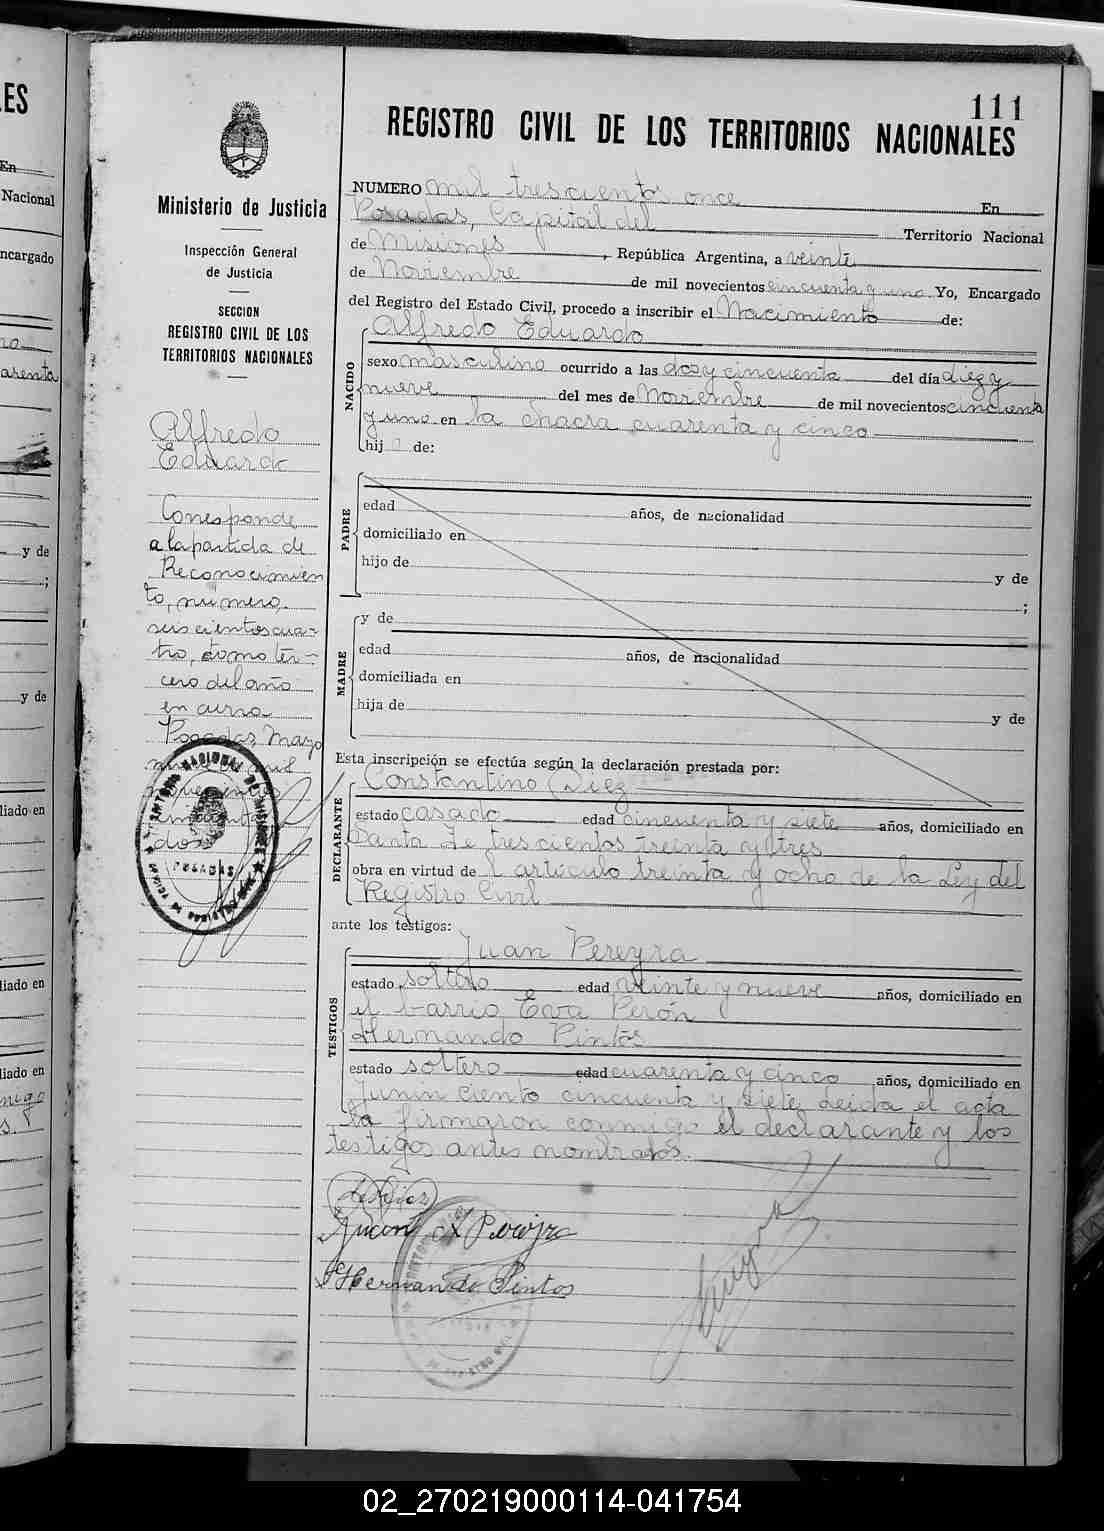 111
REGISTRO CIVIL DE LOS TERRITORIOS NACIONALES
Ministerio de Justicia
Inspección General
de Justicia
SECCION
REGISTRO CIVIL DE LOS
TERRITORIOS NACIONALES
Alfredo
Eduardo
Corresponde
a la partida de
Reconocimien
to, número
seiscientos cua-
tro, tomo ter-
cero del año
en curso
Posadas, Mayo
mil
dos
POSADAS
NUMERO mil trescientos once En
Posadas, Capital del Territorio Nacional
de Misiones, República Argentina, a veinte
de Noviembre de mil novecientos cincuenta y uno Yo, Encargado
del Registro del Estado Civil, procedo a inscribir el Nacimiento de:
NACIDO
Alfredo Eduardo
sexo masculino ocurrido a las dos y cincuenta del día diez y
nueve del mes de Noviembre de mil novecientos cincuenta
y uno en la chacra cuarenta y cinco
hijo de:
PADRE
edad años, de nacionalidad
domiciliado en
hijo de y de
;
MADRE
y de
edad años, de nacionalidad
domiciliada en
hija de y de
Esta inscripción se efectúa según la declaración prestada por:
DECLARANTE
Constantino Diez
estado casado edad cincuenta y siete años, domiciliado en
Santa Fe trescientos treinta y tres
obra en virtud de l artículo treinta y ocho de la Ley del
Registro Civil
ante los testigos:
TESTIGOS
Juan Pereyra
estado soltero edad veinte y nueve años, domiciliado en
el barrio Eva Perón
Hernando Pintos
estado soltero edad cuarenta y cinco años, domiciliado en
Junin ciento cincuenta y siete Leida el acta
la firmaron conmigo el declarante y los
testigos antes nombrados.
Juan Pereyra
Hernando Pintos
ES
En
Nacional
ncargado
arenta
y de
;
y de
liado en
liado en
liado en
02_270219000114-041754